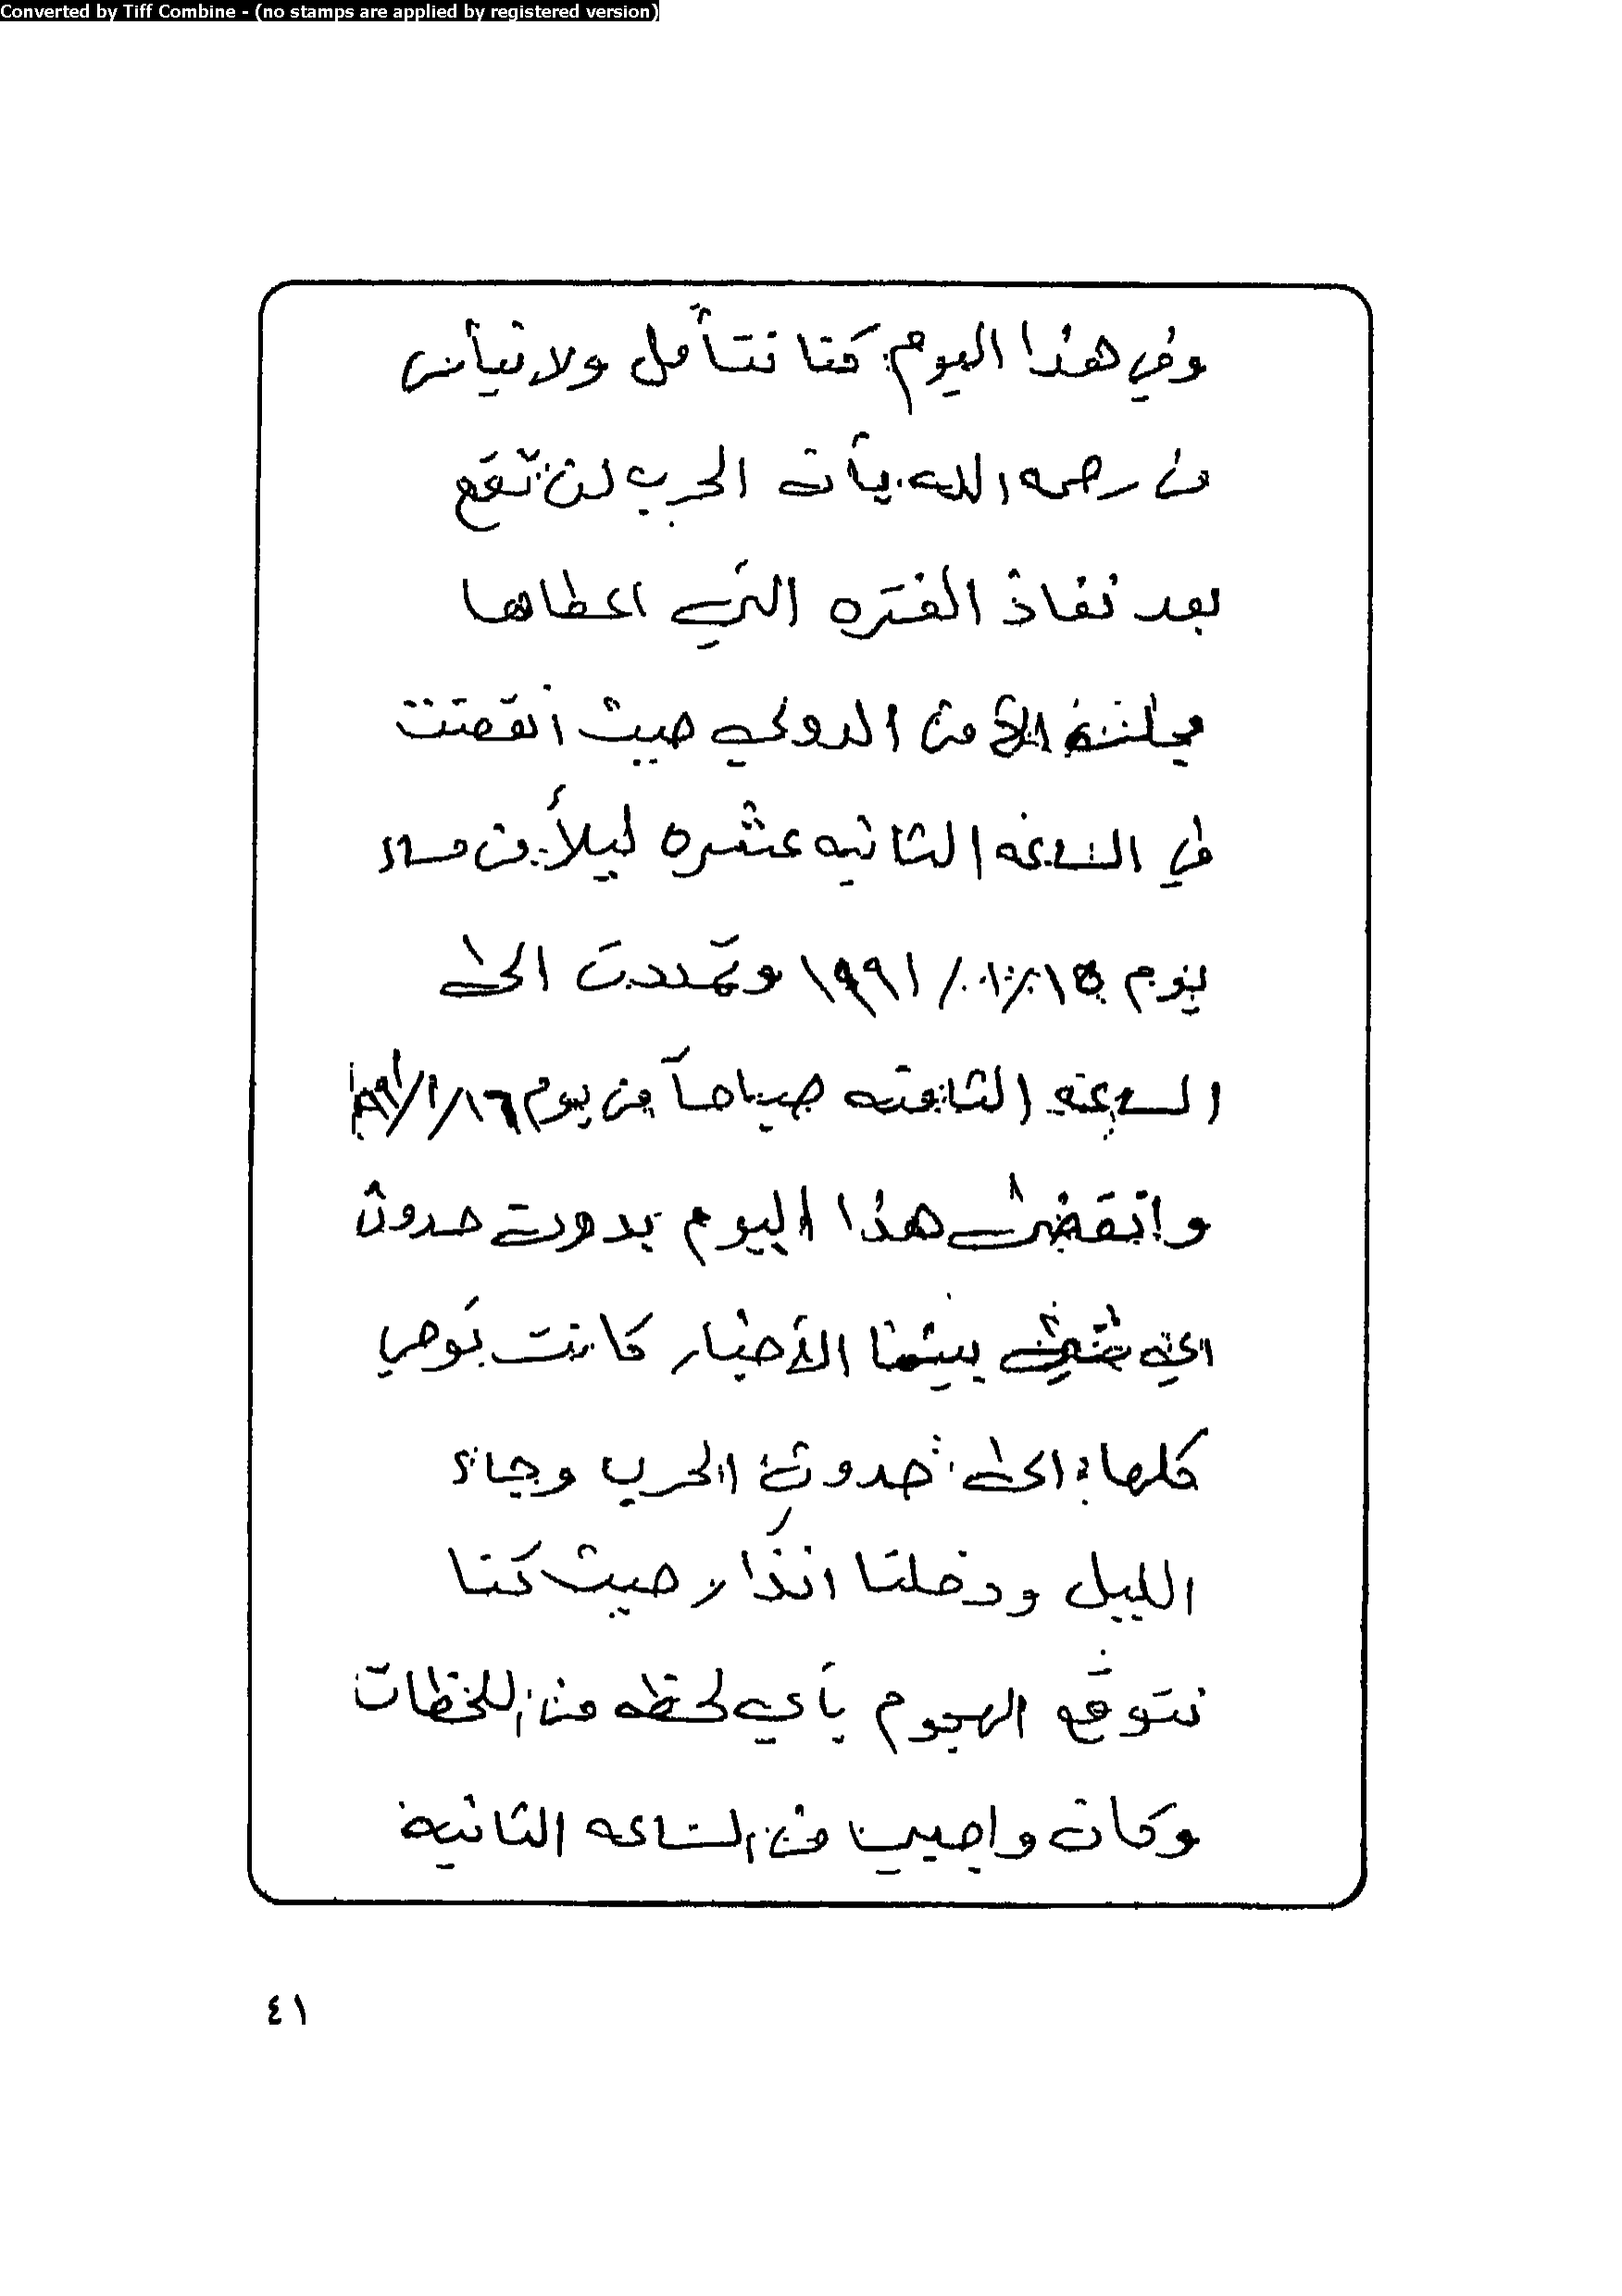 Converted by Tiff Combine - (no stamps are applied by registered version)
وفي هذا اليوم كنا نتأمل ولا نيأس
من رحمه الله بأن الحرب لن تقع
بعد نفاذ الفتره التي اعطاها
مجلس الأمن الدولي حيث أنقضت
في الساعه الثانيه عشره ليلاً من مساء
يوم ١٥/١/١٩٩١ وتمددت الى
الساعه الثامنه صباحاً من يوم ١٦/١/١٩٩١
وانقضى هذا اليوم بدون حدوث
اي شئ بينما الأخبار كانت توحي
كلها الى حدوث الحرب وجاء
الليل ودخلنا انذار حيث كنا
نتوقع الهجوم بأي لحظه من اللحظات
وكان واجبي من الساعه الثانيه
٤١